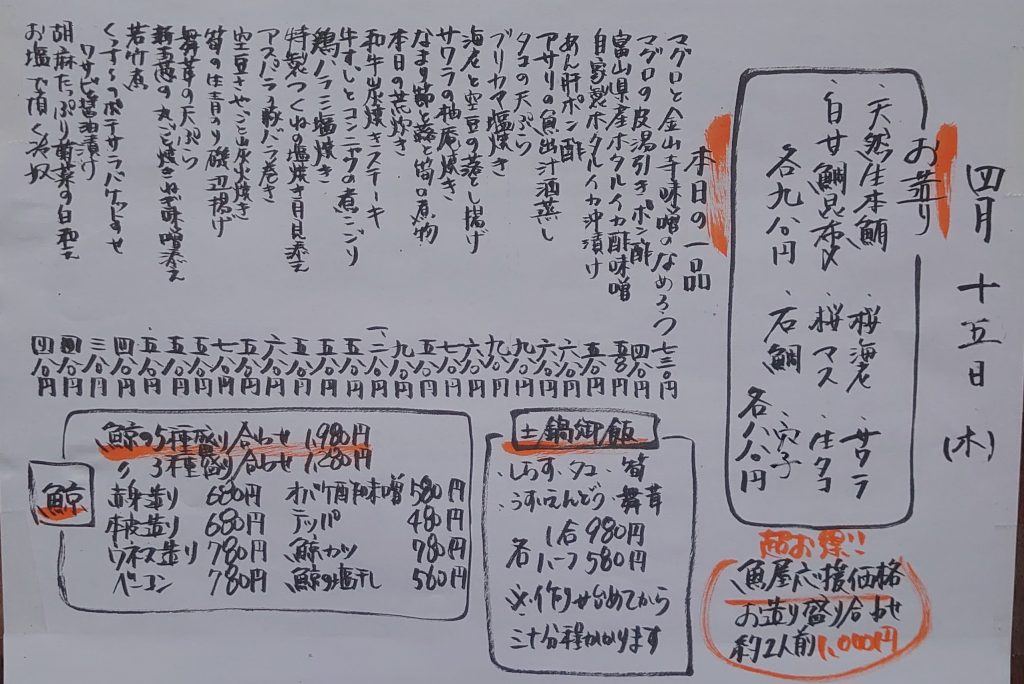 四月十五日(木)
お造り
・天然生本鮪
・白甘鯛昆布〆
各九八〇円
・桜海老
・サワラ
・桜マス
・生タコ
・石鯛
・穴子
各八八〇円
本日の一品
マグロと金山寺味噌のなめろう 七三〇円
マグロの皮湯引きポン酢 四八〇円
富山県産ホタルイカ酢味噌 五八〇円
自家製ホタルイカ沖漬け 五八〇円
あん肝ポン酢 六八〇円
アサリの魚出汁酒蒸し 六八〇円
タコの天ぷら 九八〇円
ブリカマ塩焼き 九八〇円
海老と空豆の落とし揚げ 六八〇円
サワラの柚庵焼き 七八〇円
なまり節と蕗と筍の煮物 五八〇円
本日の荒炊き 九八〇円
和牛炭焼きステーキ 一、二八〇円
牛すじとコンニャクの煮こごり 五八〇円
鶏ハラミ塩焼き 五八〇円
特製つくねの塩焼き月見添え 六八〇円
アスパラ豚バラ巻き 五八〇円
空豆さやごと炭火焼き 七八〇円
筍の生青のり磯辺揚げ 五八〇円
舞茸の天ぷら 五八〇円
新玉葱の丸ごと焼きねぎ味噌添え 五八〇円
若竹煮 四八〇円
くんすものポテサラバケットのせ
ワサビ醤油漬け 三八〇円
胡麻たっぷり菊菜の白和え 四八〇円
お塩で頂く冷奴 四八〇円
鯨
鯨の5種盛り合わせ 1,980円
〃 3種盛り合わせ 1,280円
赤身造り 680円
本皮造り 680円
ウネス造り 780円
ベーコン 780円
オバケ酢味噌 580円
テッパ 480円
鯨カツ 780円
鯨の塩干し 580円
土鍋御飯
・しらす・タコ・筍
・うすいえんどう・舞茸
各 1合 980円
ハーフ 580円
※作り始めてから
三十分程かかります
超お得!!
魚屋応援価格
お造り盛り合わせ
約2人前 1,000円